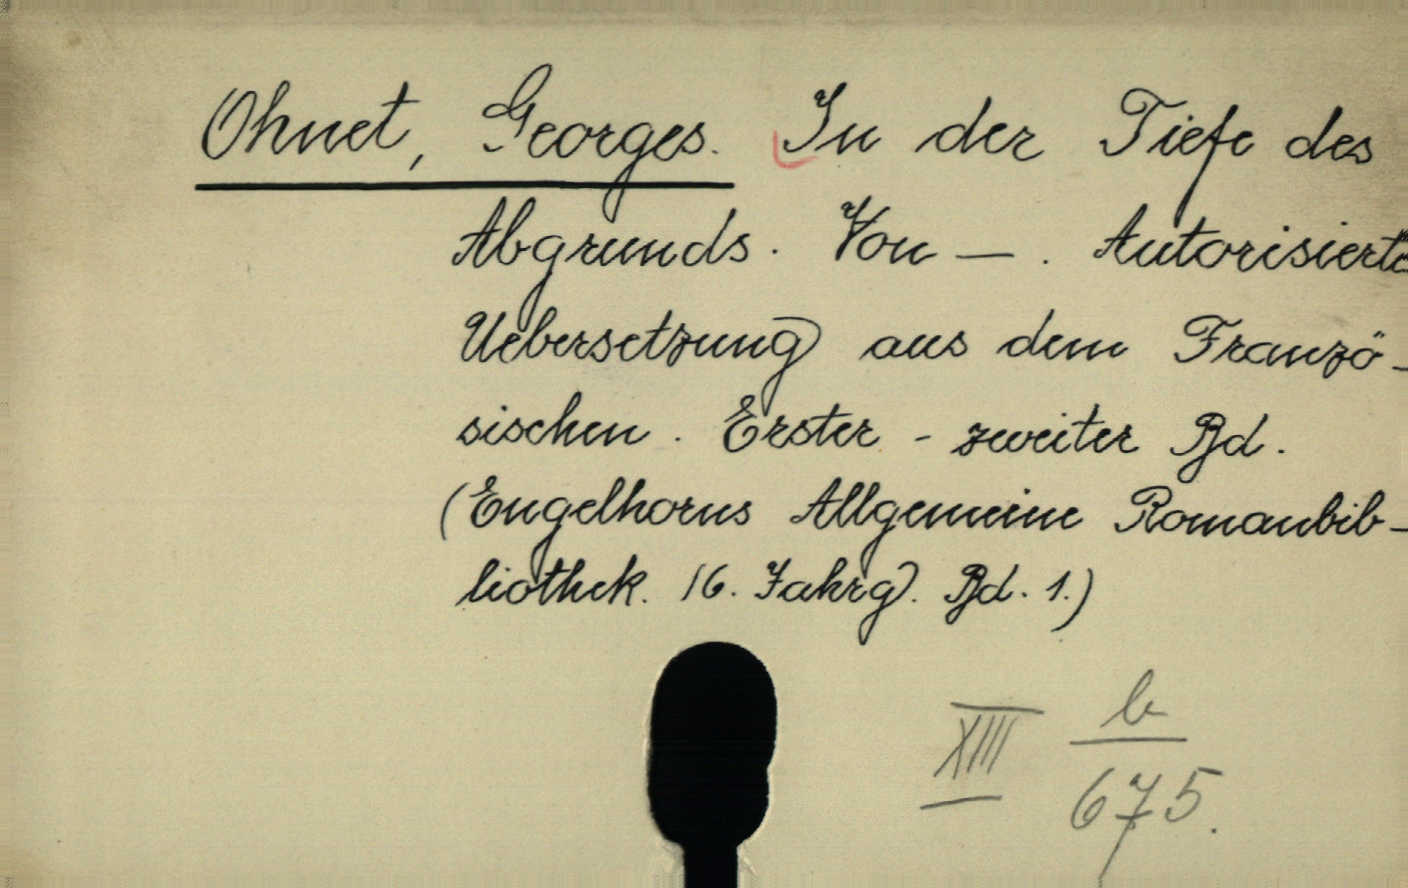 Ohnet, Georges. In der Tiefe des
Abgrunds. Von —. Autorisierte
Uebersetzung aus dem Franzö-
sischen. Erster - zweiter Bd.
(Engelhorns Allgemeine Romanbib-
liothek. 16. Jahrg. Bd. 1.)
XIII b
675.